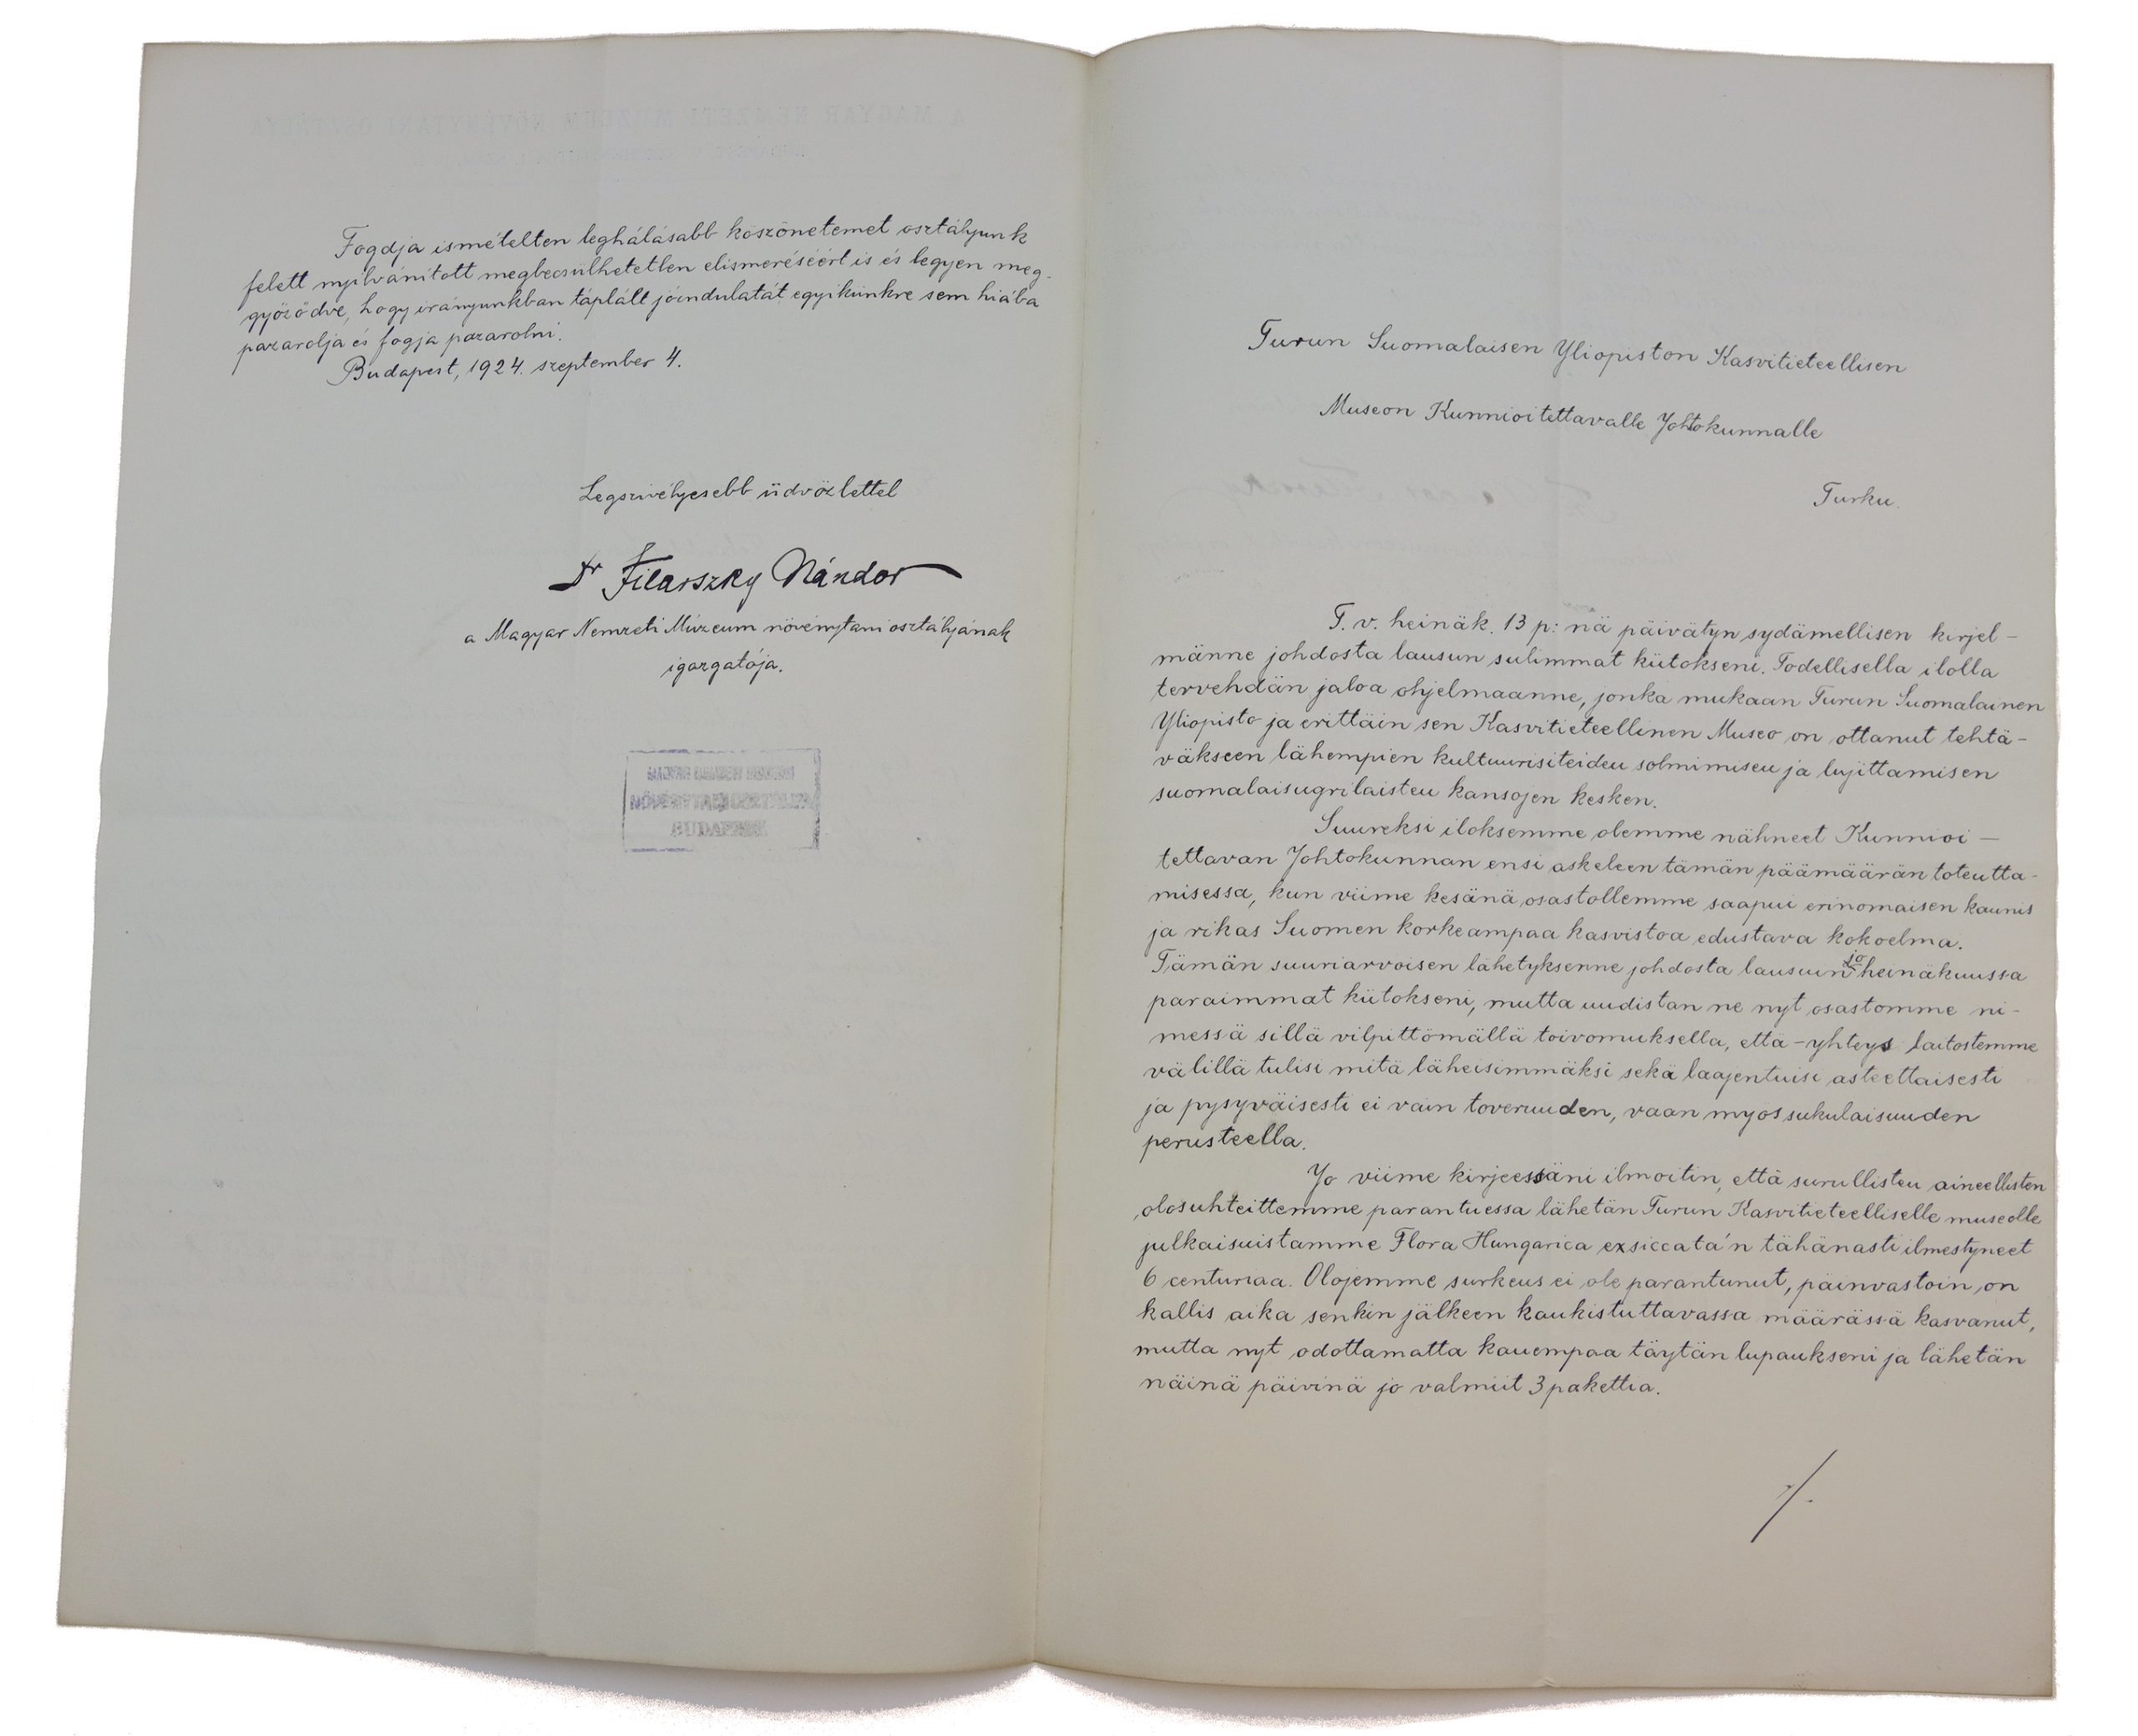 Fogadja ismételten leghálásabb köszönetemet osztályunk
felett nyilvánított megbecsülhetetlen elismeréséért is és legyen meg-
győződve, hogy irányunkban táplált jóindulatát egyikünkre sem hiába
pazarolja és fogja pazarolni.
Budapest, 1924. szeptember 4.
Legszivélyesebb üdvözlettel
Dr Filarszky Nándor
a Magyar Nemzeti Múzeum növénytani osztályának
igazgatója.
MAGYAR NEMZETI MÚZEUM
NÖVÉNYTANI OSZTÁLYA
BUDAPEST
Turun Suomalaisen Yliopiston Kasvitieteellisen
Museon Kunnioitettavalle Johtokunnalle
Turku.
T. v. heinäk. 13 p:nä päivätyn sydämellisen kirjel-
männe johdosta lausun sulimmat kiitokseni. Todellisella ilolla
tervehdän jaloa ohjelmaanne, jonka mukaan Turun Suomalainen
Yliopisto ja erittäin sen Kasvitieteellinen Museo on ottanut tehtä-
väkseen lähempien kultuurisiteiden solmimisen ja lujittamisen
suomalaisugrilaisten kansojen kesken.
Suureksi iloksemme olemme nähneet Kunnioi-
tettavan Johtokunnan ensi askeleen tämän päämäärän toteutta-
misessa, kun viime kesänä osastollemme saapui erinomaisen kaunis
ja rikas Suomen korkeampaa kasvistoa edustava kokoelma.
Tämän suuriarvoisen lähetyksenne johdosta lausuin jo heinäkuussa
paraimmat kiitokseni, mutta uudistan ne nyt osastomme ni-
messä sillä vilpittömällä toivomuksella, että yhteys laitostemme
välillä tulisi mitä läheisimmäksi sekä laajentuisi asteettaisesti
ja pysyväisesti ei vain toveruuden, vaan myös sukulaisuuden
perusteella.
Jo viime kirjeessäni ilmoitin, että surullisten aineellisten
olosuhteittemme parantuessa lähetän Turun Kasvitieteelliselle museolle
julkaisuistamme Flora Hungarica exsiccata'n tähänasti ilmestyneet
6 centuriaa. Olojemme surkeus ei ole parantunut, päinvastoin on
kallis aika senkin jälkeen kaukistuttavassa määrässä kasvanut,
mutta nyt odottamatta kauempaa täytän lupaukseni ja lähetän
näinä päivinä jo valmiit 3 pakettia.
./.